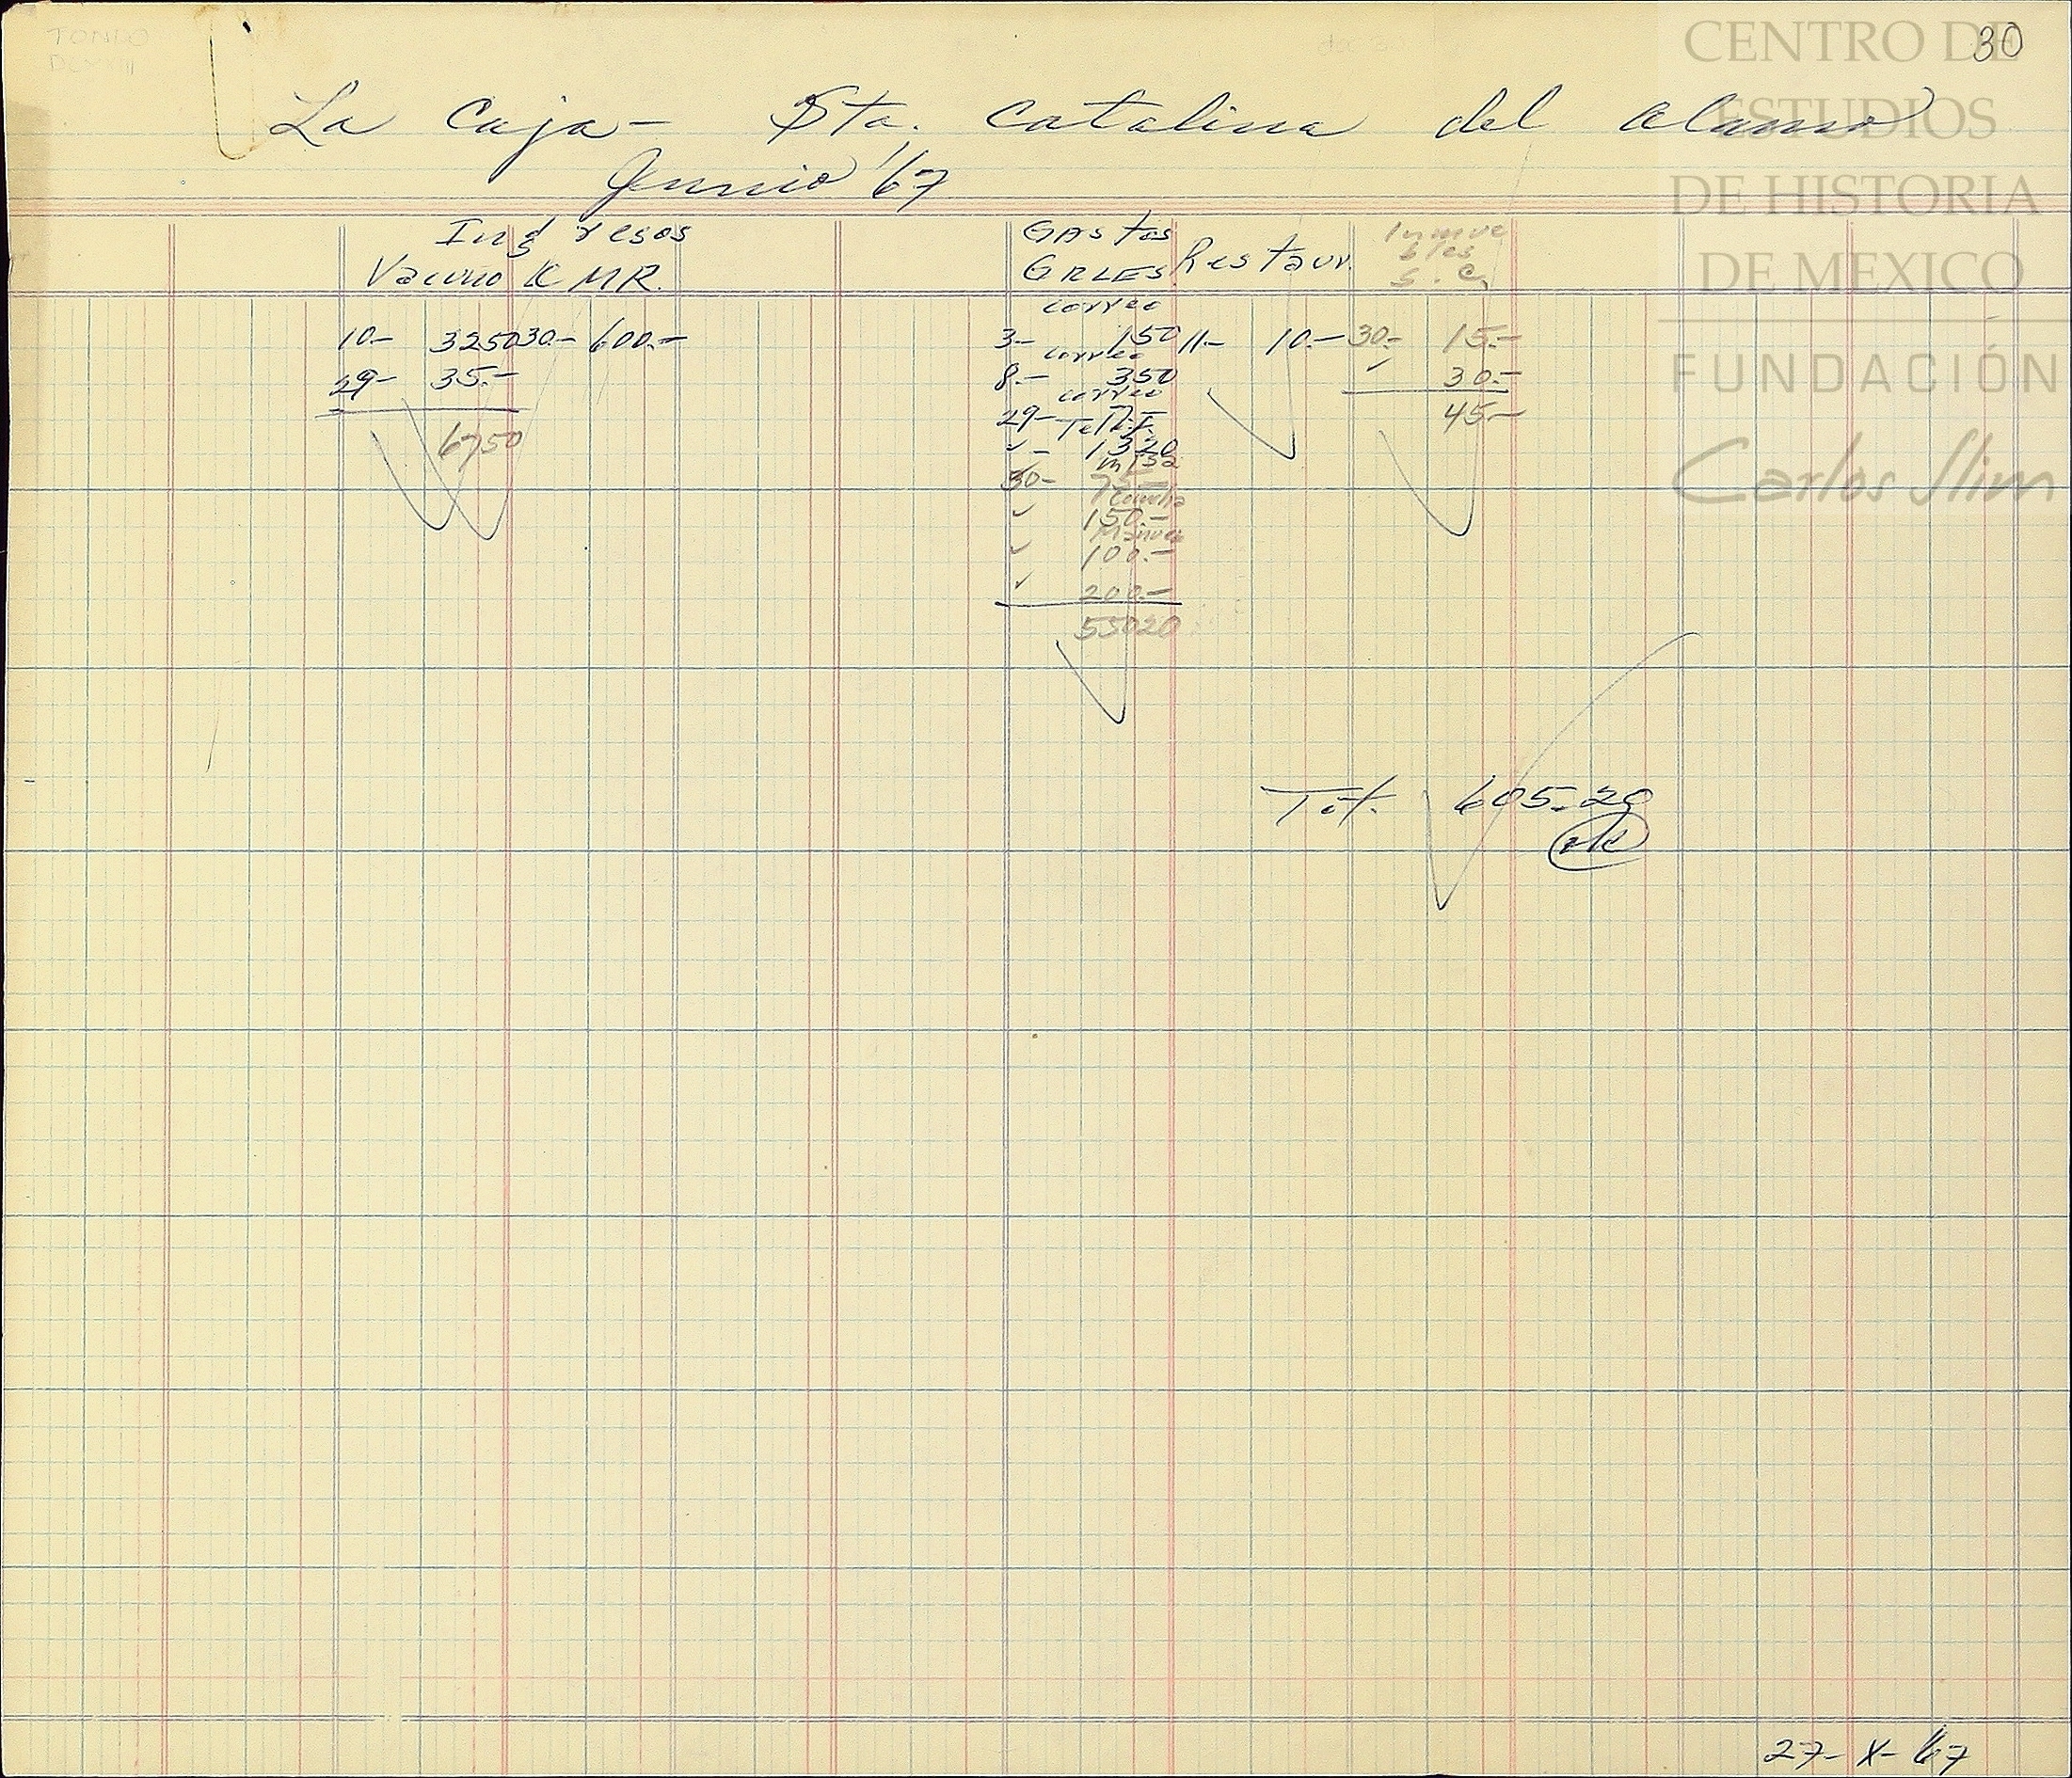 30
La Caja - Sta. Catalina del Alamo
Junio '67
Ingresos Gastos Restaur. Inmue
bles
Vacuno KMR. GRLES S.C.
correo
10.- 3250 30.- 600.- 3- 150 11- 10.- 30.- 15.-
correo
29- 35.- 8.- 350 ✓ 30.-
correo
6750 29- 45-
Telef.
✓ - 1320
misa
30- 75.-
Concha
✓ 150.-
✓ 100.-
✓ 200.-
55020
Tot. 605.20
27-X-67
CENTRO DE
ESTUDIOS
DE HISTORIA
DE MEXICO
FUNDACIÓN
Carlos Slim